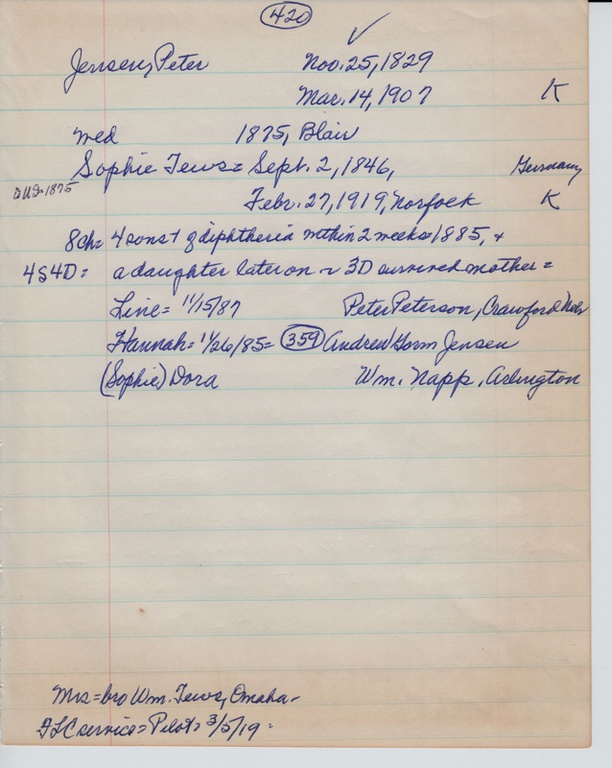 420
Jensen, Peter Nov. 25, 1829
Mar. 14, 1907 K
med 1875, Blair
Sophie Tews = Sept. 2, 1846, Germany
1875
Febr. 27, 1919, Norfolk K
8ch = 4 sons † of diphtheria within 2 weeks = 1885, +
4S4D = a daughter later on ~ 3D survived mother =
Line = 11/15/87 Peter Peterson, Crawford Neb
Hannah = 11/26/85 = 359 Andrew Gorm Jensen
(Sophie) Dora Wm. Napp, Arlington
Mrs = bro Wm. Tews, Omaha -
FLC service = Pilot = 3/5/19 =